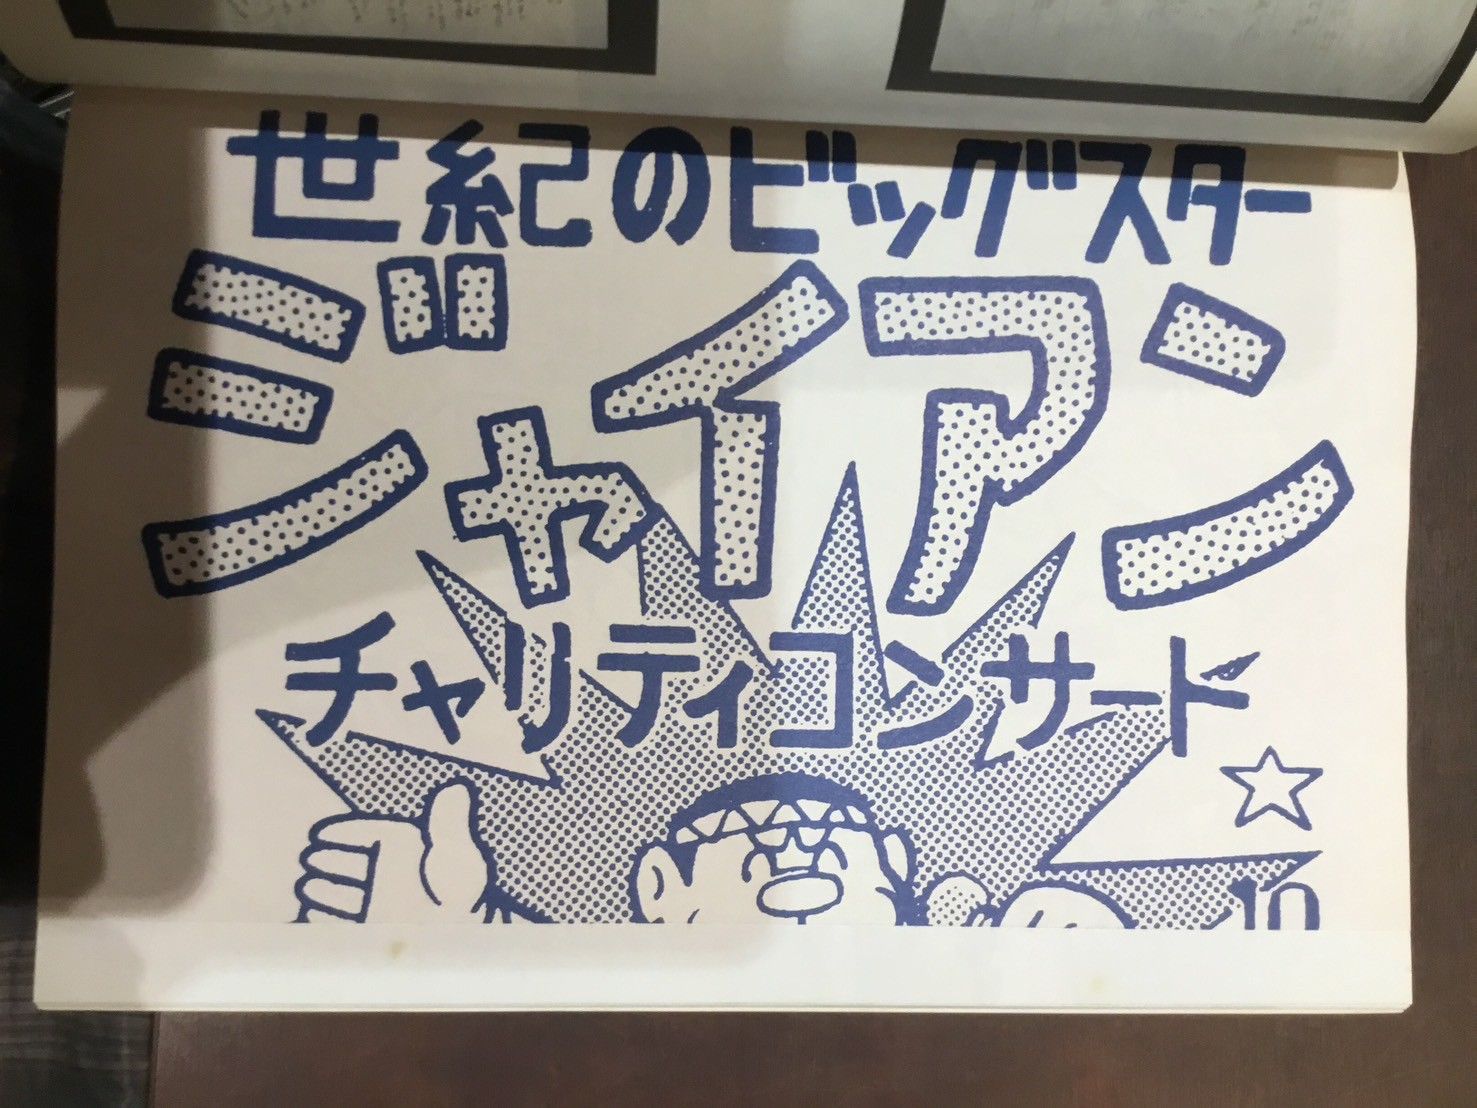 世紀のビッグスター
ジャイアン
チャリティコンサート
10